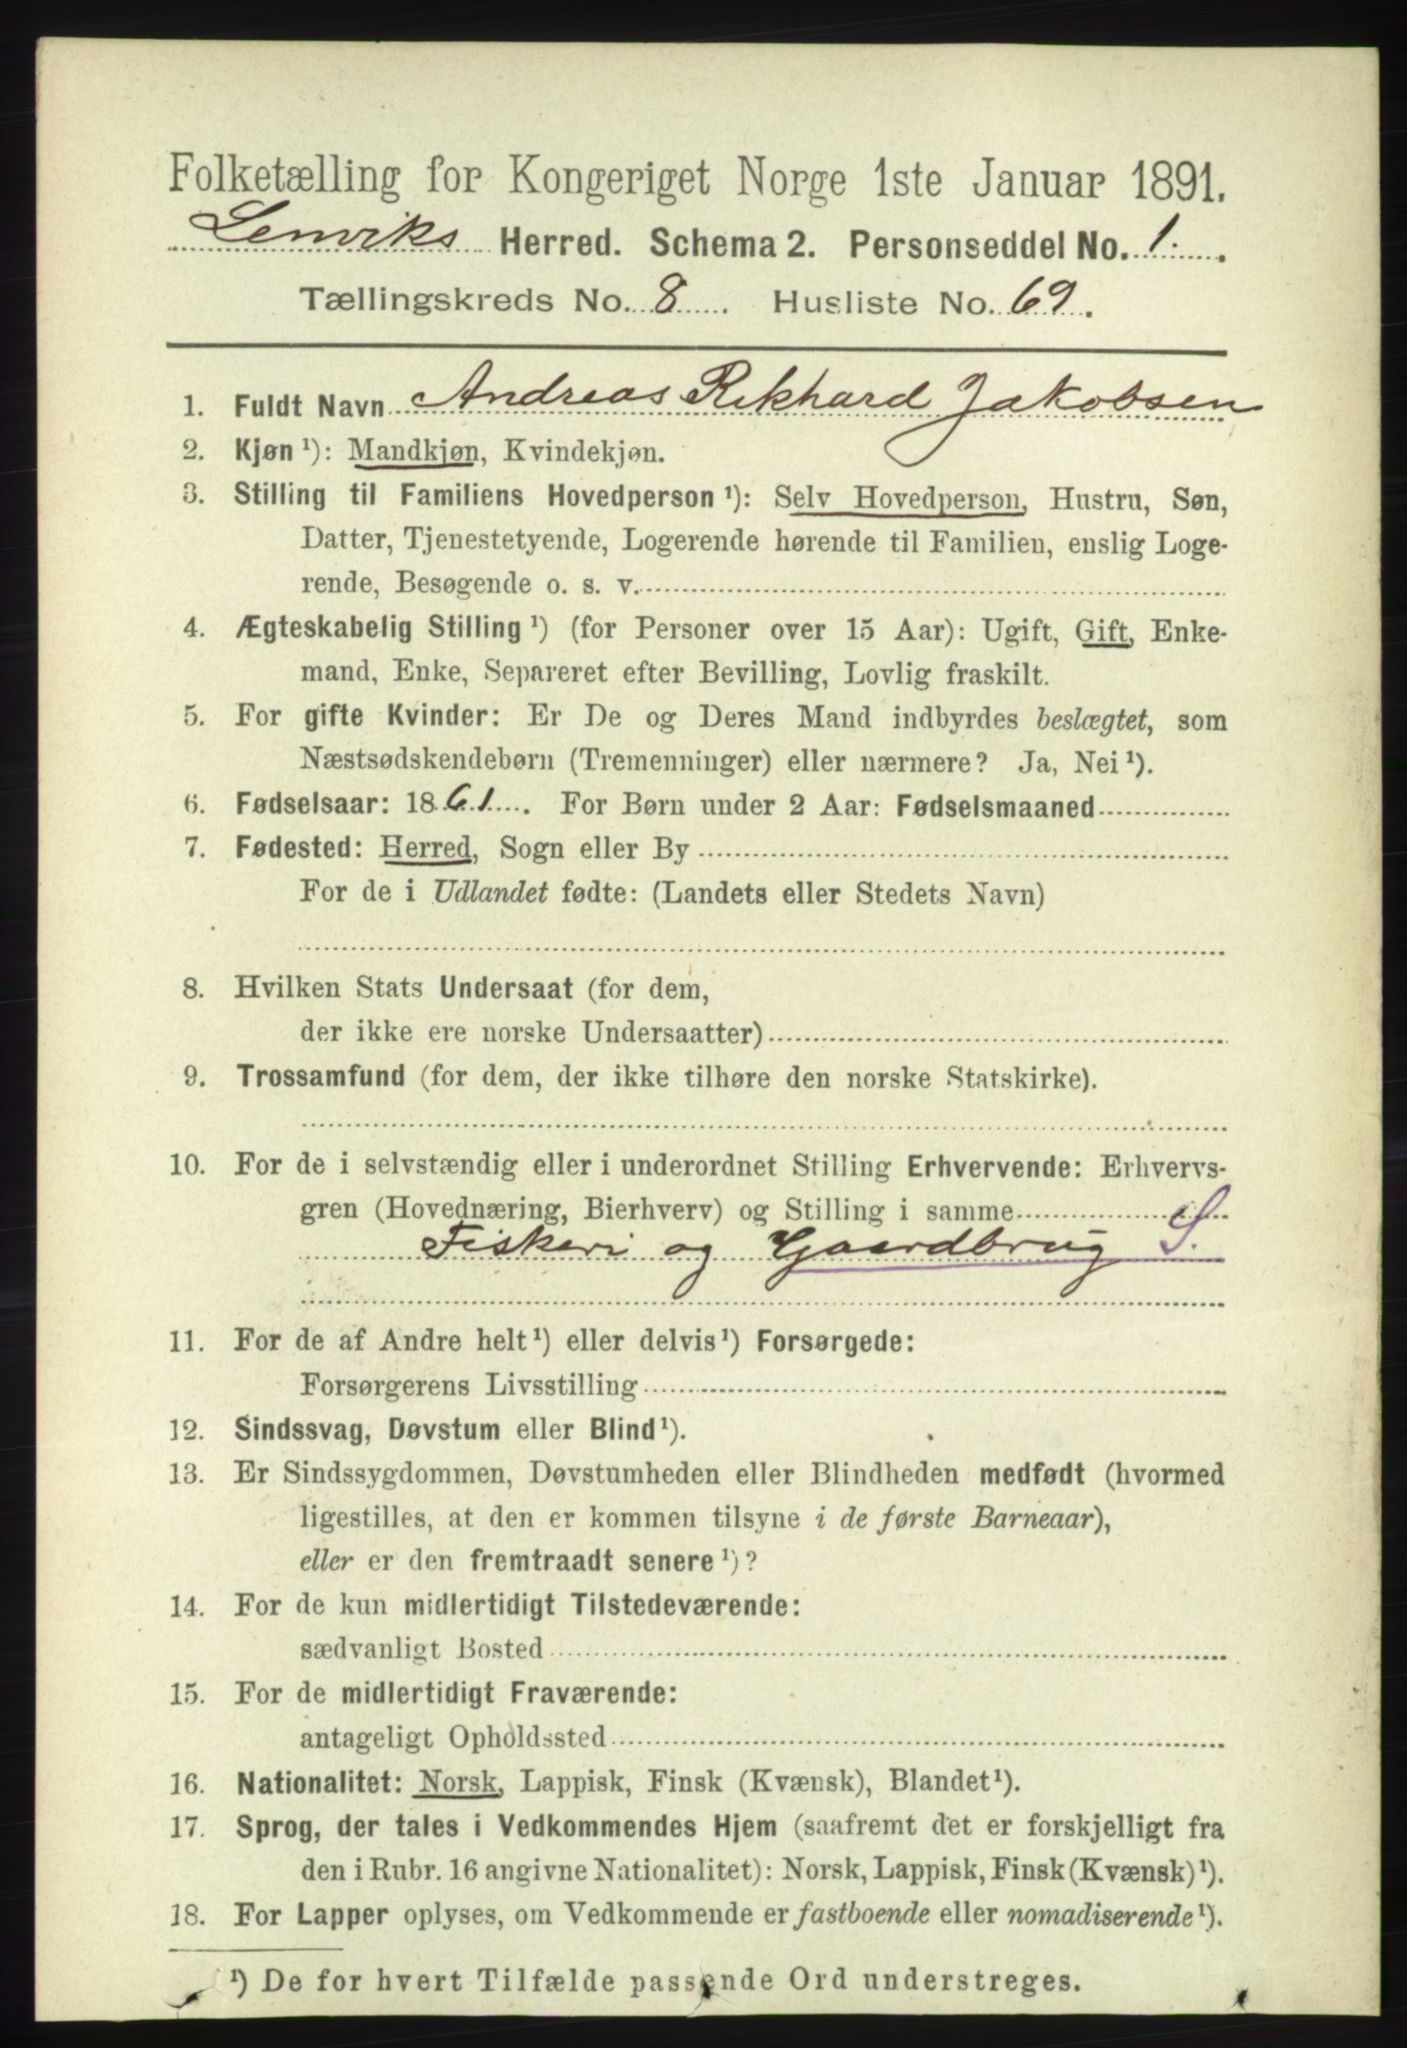 Folketælling for Kongeriget Norge 1ste Januar 1891.
Lenviks Herred. Schema 2. Personseddel No. 1.
Tællingskreds No. 8. Husliste No. 69.
1. Fuldt Navn Andreas Rikhard Jakobsen
2. Kjøn ¹): Mandkjøn, Kvindekjøn.
3. Stilling til Familiens Hovedperson ¹): Selv Hovedperson, Hustru, Søn,
Datter, Tjenestetyende, Logerende hørende til Familien, enslig Loge-
rende, Besøgende o. s. v.
4. Ægteskabelig Stilling ¹) (for Personer over 15 Aar): Ugift, Gift, Enke-
mand, Enke, Separeret efter Bevilling, Lovlig fraskilt.
5. For gifte Kvinder: Er De og Deres Mand indbyrdes beslægtet, som
Næstsødskendebørn (Tremenninger) eller nærmere? Ja, Nei ¹).
6. Fødselsaar: 1861. For Børn under 2 Aar: Fødselsmaaned
7. Fødested: Herred, Sogn eller By
For de i Udlandet fødte: (Landets eller Stedets Navn)
8. Hvilken Stats Undersaat (for dem,
der ikke ere norske Undersaatter)
9. Trossamfund (for dem, der ikke tilhøre den norske Statskirke).
10. For de i selvstændig eller i underordnet Stilling Erhvervende: Erhvervs-
gren (Hovednæring, Bierhverv) og Stilling i samme
Fiskeri og Gaardbrug S.
11. For de af Andre helt ¹) eller delvis ¹) Forsørgede:
Forsørgerens Livsstilling
12. Sindssvag, Døvstum eller Blind ¹).
13. Er Sindssygdommen, Døvstumheden eller Blindheden medfødt (hvormed
ligestilles, at den er kommen tilsyne i de første Barneaar),
eller er den fremtraadt senere ¹)?
14. For de kun midlertidigt Tilstedeværende:
sædvanligt Bosted
15. For de midlertidigt Fraværende:
antageligt Opholdssted
16. Nationalitet: Norsk, Lappisk, Finsk (Kvænsk), Blandet ¹).
17. Sprog, der tales i Vedkommendes Hjem (saafremt det er forskjelligt fra
den i Rubr. 16 angivne Nationalitet): Norsk, Lappisk, Finsk (Kvænsk) ¹).
18. For Lapper oplyses, om Vedkommende er fastboende eller nomadiserende ¹).
¹) De for hvert Tilfælde passende Ord understreges.